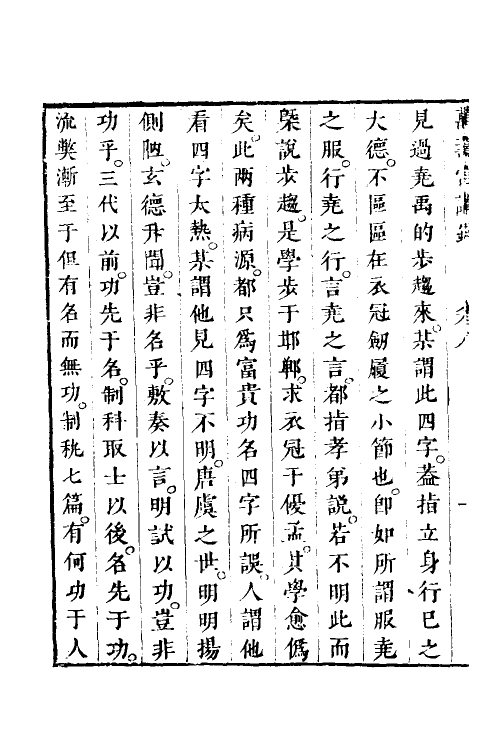 見過堯禹的步趨來。某謂此四字。蓋指立身行已之
大德。不區區在衣冠劒履之小節也。卽如所謂服堯
之服。行堯之行。言堯之言。都指孝弟說。若不明此而
槩說步趨。是學步于邯鄲。求衣冠于優孟。其學愈僞
矣。此兩種病源。都只爲富貴功名四字所誤。人謂他
看四字太熱。某謂他見四字不明。唐虞之世。明明揚
側陋。玄德升聞。豈非名乎。敷奏以言。明試以功。豈非
功乎。三代以前。功先于名。制科取士以後。名先于功。
流獘漸至于但有名而無功。制秇七篇。有何功于人